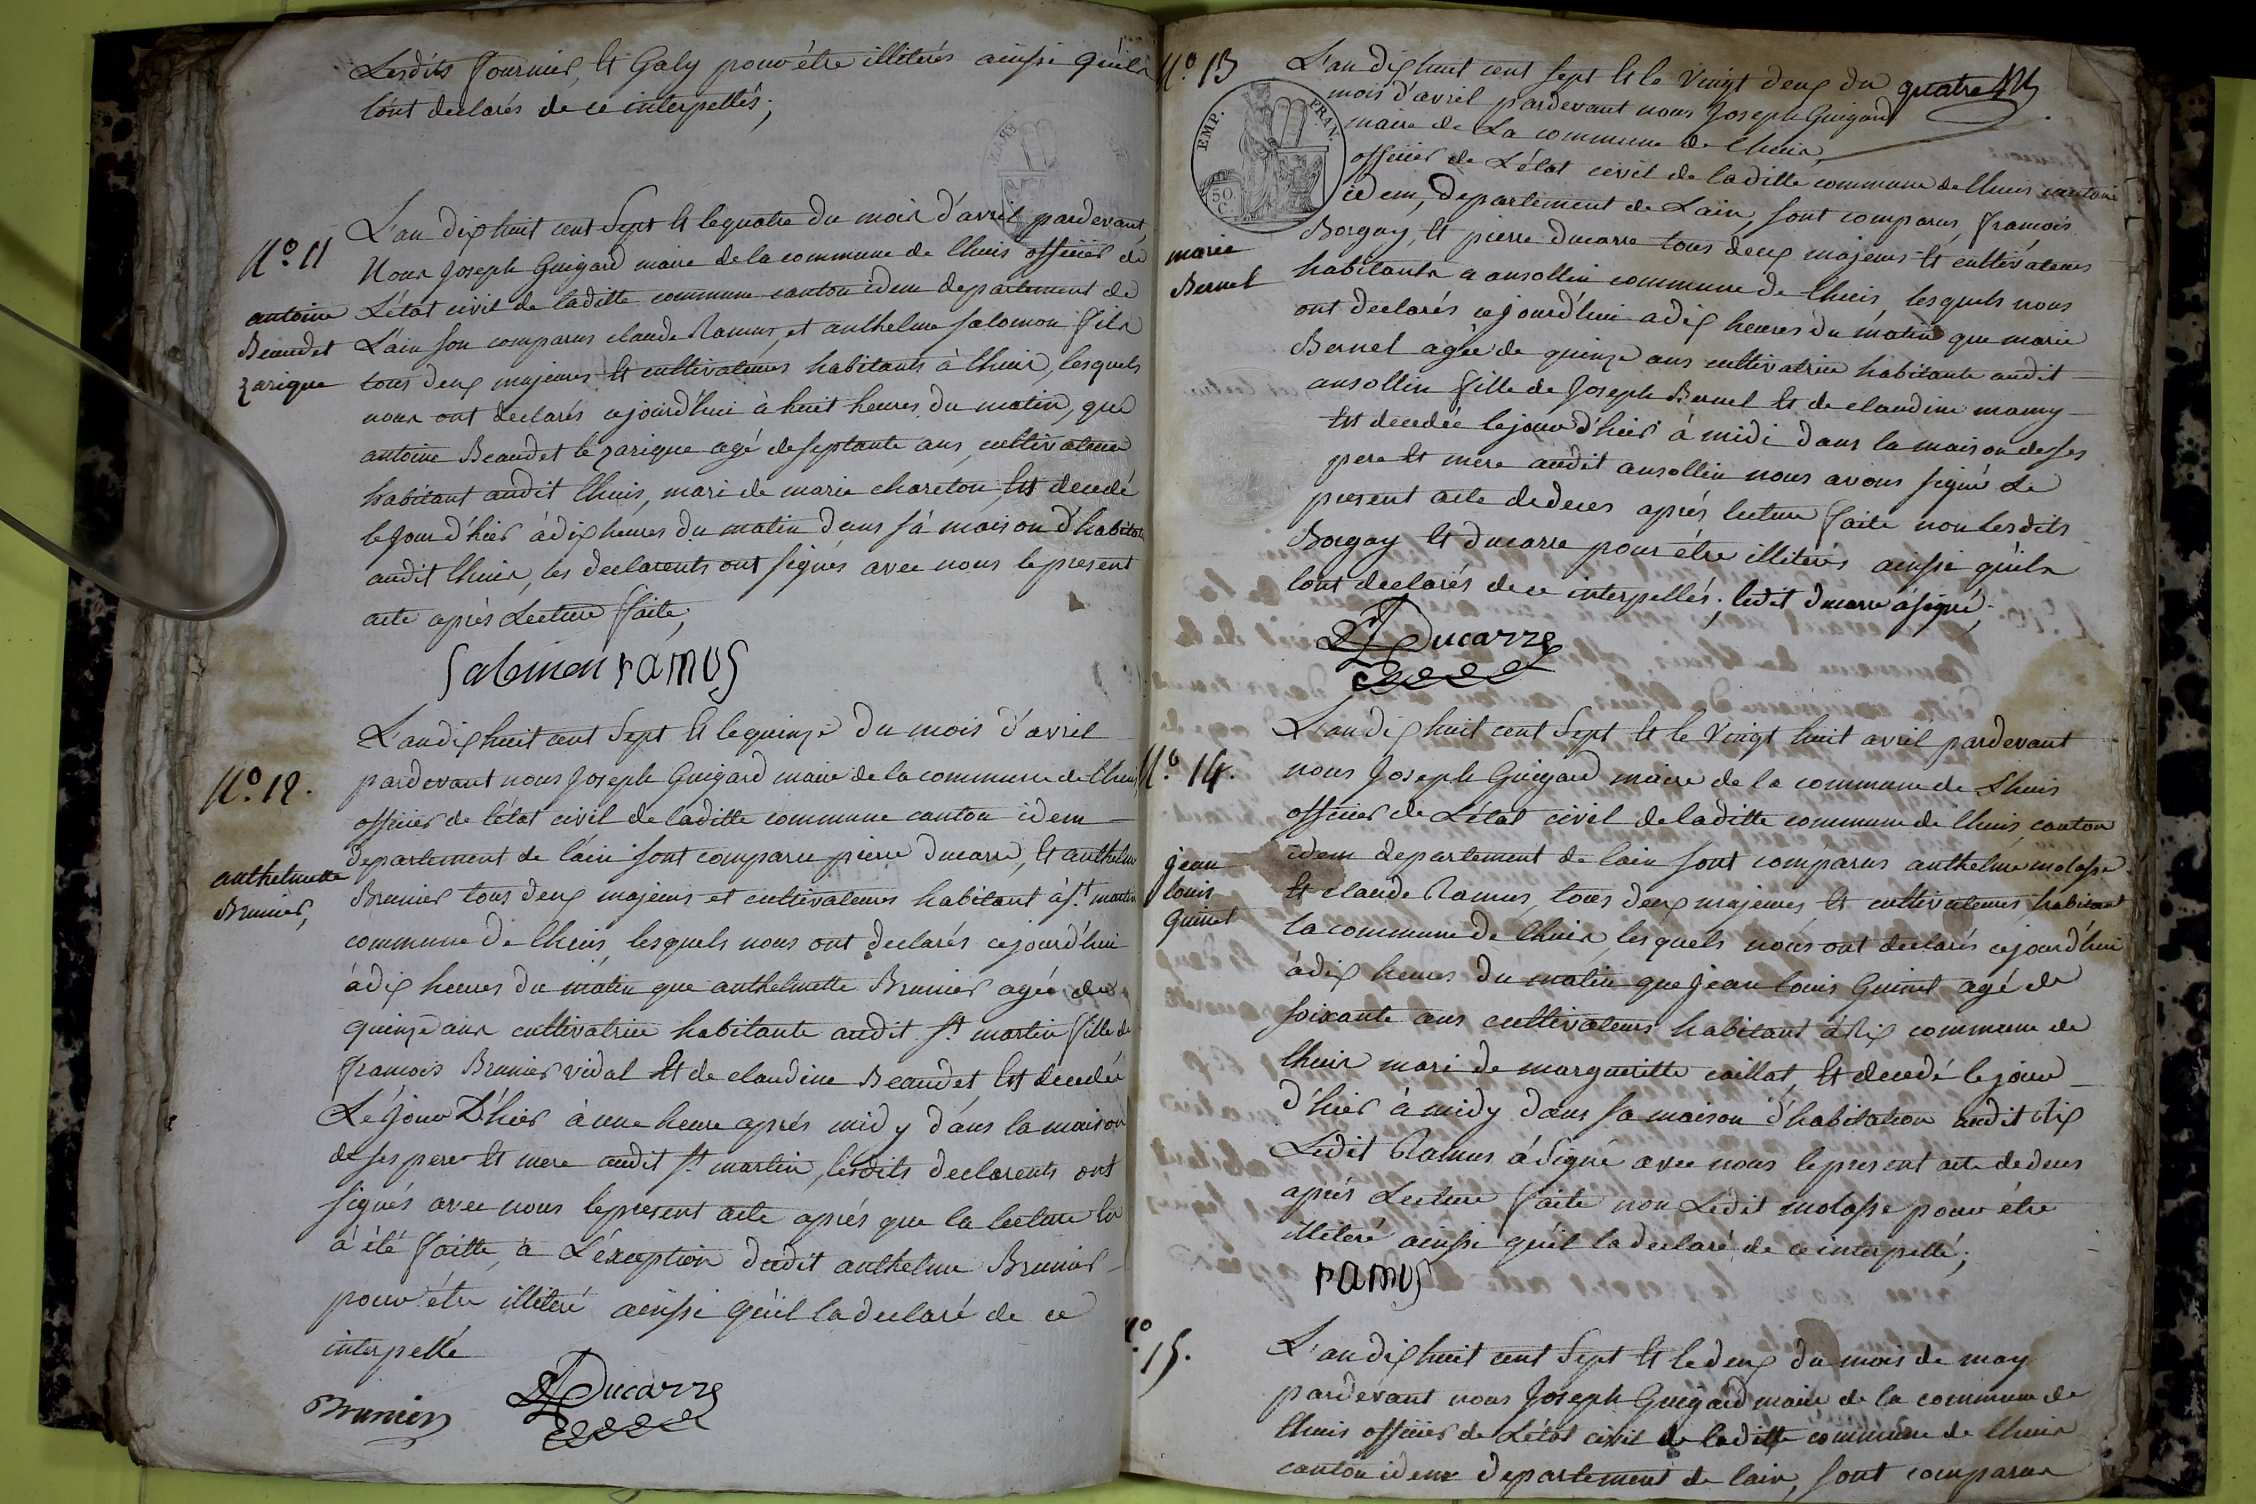 Lesdits fournier, et Galy pour être illiterés ainsi qu'ils
l'ont declarés de ce interpellés;
N.º 11
antoine
Beaudet
zarique
L'an dix huit cent sept et le quatre du mois d'avril pardevant
Nous Joseph Guigard maire de la commune de lhuis officier de
L'état civil de laditte commune canton idem departement de
L'ain son comparus claude Ramus, et anthelme salomon fils
tous deux majeures et cultivateurs habitants à lhuis, lesquels
nous ont declarés cejourd'hui à huit heures du matin, que
antoine Beaudet le zarique agé de septante ans, cultivateur
habitant audit lhuis, mari de marie chareton est decedé
le jour d'hier à dix heures du matin dans sa maison d'habitation
audit lhuis, les declarents ont signés avec nous le present
acte après Lecture faite;
Salomon ramus
N.º 12.
anthelmette
Brunier,
L'an dix huit cent sept et le quinze du mois d'avril
pardevant nous Joseph Guigard maire de la commune de lhuis
officier de l'état civil de laditte commune canton idem
departement de l'ain sont comparu pierre ducarre, et anthelme
Brunier tous deux majeurs et cultivateurs habitant à s.t martin
commune de lhuis, lesquels nous ont declarés cejourd'hui
à dix heures du matin que anthelmette Brunier agée de
quinze ans cultivatrice habitante audit s.t martin fille de
francois Brunier vidal et de claudine Beaudet, est decedée
Le jour D'hier à une heure après midy dans la maison
de ses pere et mere audit s.t martin, lesdits declarents ont
signés avec nous le present acte après que la lecture lu
à été faitte, à L'exception dudit anthelme Brunier
pour être illiteré ainsi qu'il la declaré de ce
interpellé
Brunier Ducarre
N.º 13
EMP. FRAN.
50 C.
marie
Bernel
L'an dix huit cent sept et le vingt deux du quatre
mois d'avril pardevant nous Joseph Guigard
maire de La commune de lhuis,
officier de L'état civil de laditte commune de lhuis canton
idem, departement de Lain, sont comparus, francois
Borgay, et pierre ducarre tous deux majeurs et cultivateurs
habitants a ansollin commune de lhuis, lesquels nous
ont declarés cejourd'hui a dix heures du matin que marie
Bernel agée de quinze ans cultivatrice habitante audit
ansollin fille de Joseph Bernel et de claudine mamy
est decedée le jour d'hier à midi dans la maison de ses
pere et mere audit ansollin nous avons signé Le
present acte de deces après lecture faite non lesdits
Borgay et ducarre pour être illiterés ainsi qu'ils
lont declarés de ce interpellés; ledit ducarre à signé;
Ducarre
N.º 14.
jean
louis
Guinet
L'an dix huit cent sept et le vingt huit avril pardevant
nous Joseph Guigard maire de la commune de Lhuis
officier de L'état civil de laditte commune de lhuis canton
idem departement de lain sont comparus anthelme molasse
et claude Ramus, tous deux majeures et cultivateurs habitant
la commune de lhuis, lesquels nous ont declarés cejourd'hui
à dix heures du matin que Jean louis Guinet agé de
soixante ans cultivateur habitant à Rix commune de
lhuis mari de margueritte caillat, et decedé le jour
d'hier à midy dans sa maison d'habitation audit Rix
Ledit Ramus à signé avec nous le present acte de deces
après Lecture faite non Ledit molasse pour être
illiteré ainsi qu'il la declaré de ce interpellé;
ramus
N.º 15.
L'an dix huit cent sept et le deux du mois de may
pardevant nous Joseph Guigard maire de la commune de
lhuis officier de L'état civil de laditte commune de lhuis
canton idem departement de lain, sont comparus